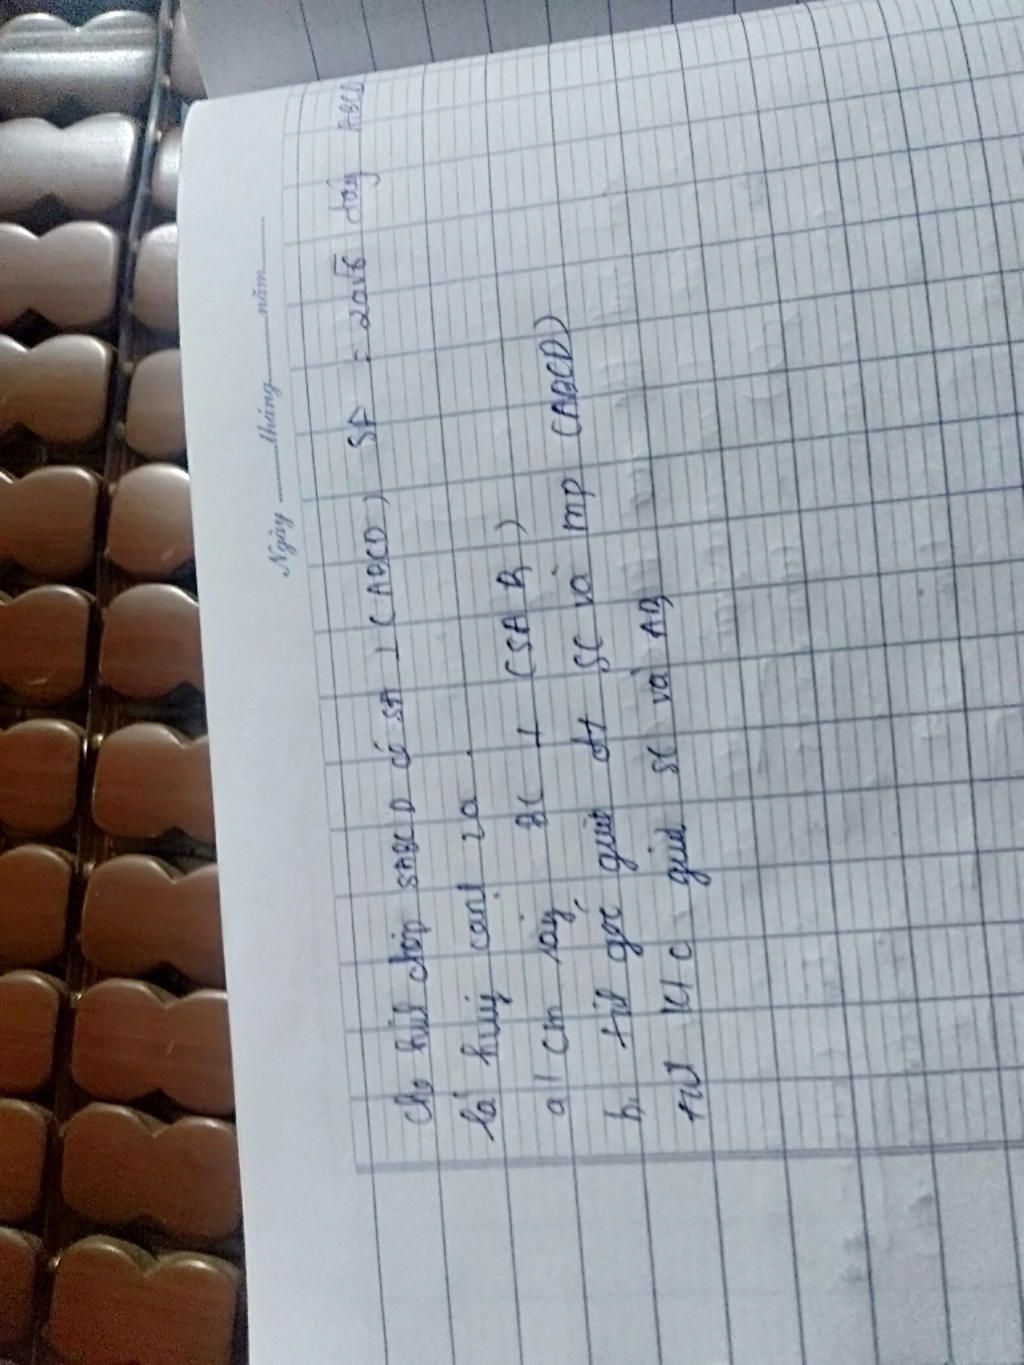 Ngày ............tháng............năm............
Cho hình chóp SABCD có SA ⊥ (ABCD) SA = 2a√6 đáy ABCD
là hvuông cạnh 2a .
a/ Cm rằng BC ⊥ (SAB)
b, tính góc giữa đt SC và mp (ABCD)
tính K/c giữa SC và AB